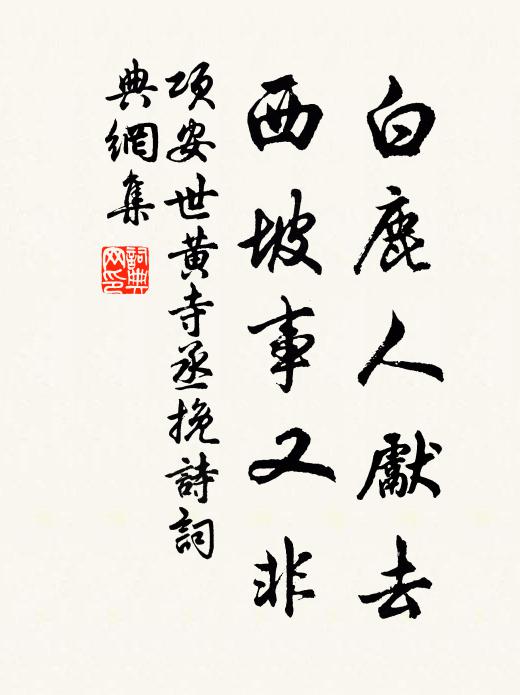 白鹿人獻去
西坡事又非
項安世黃寺丞挽詩詞
典網集
詞典
网印